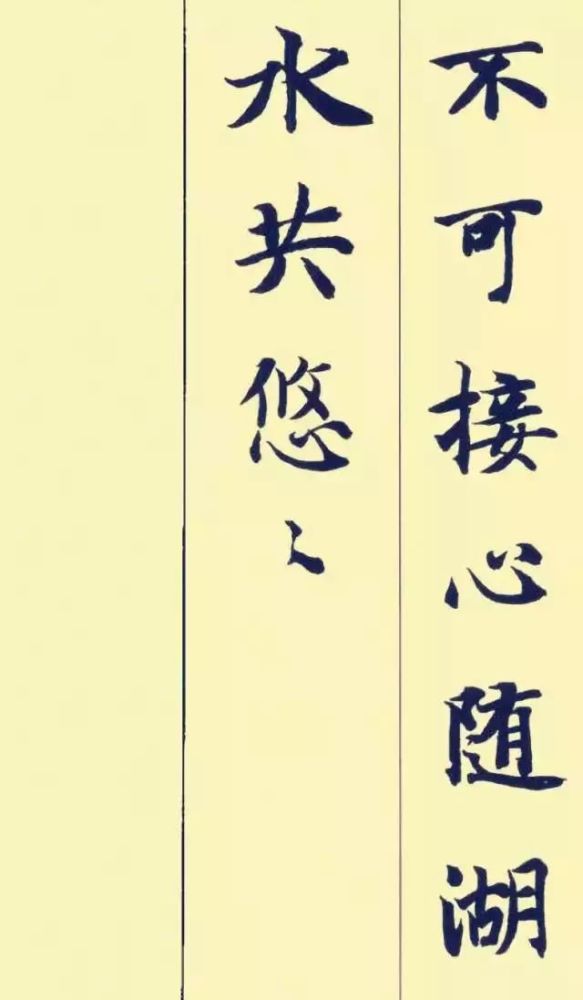 不可接心随湖
水共悠〻